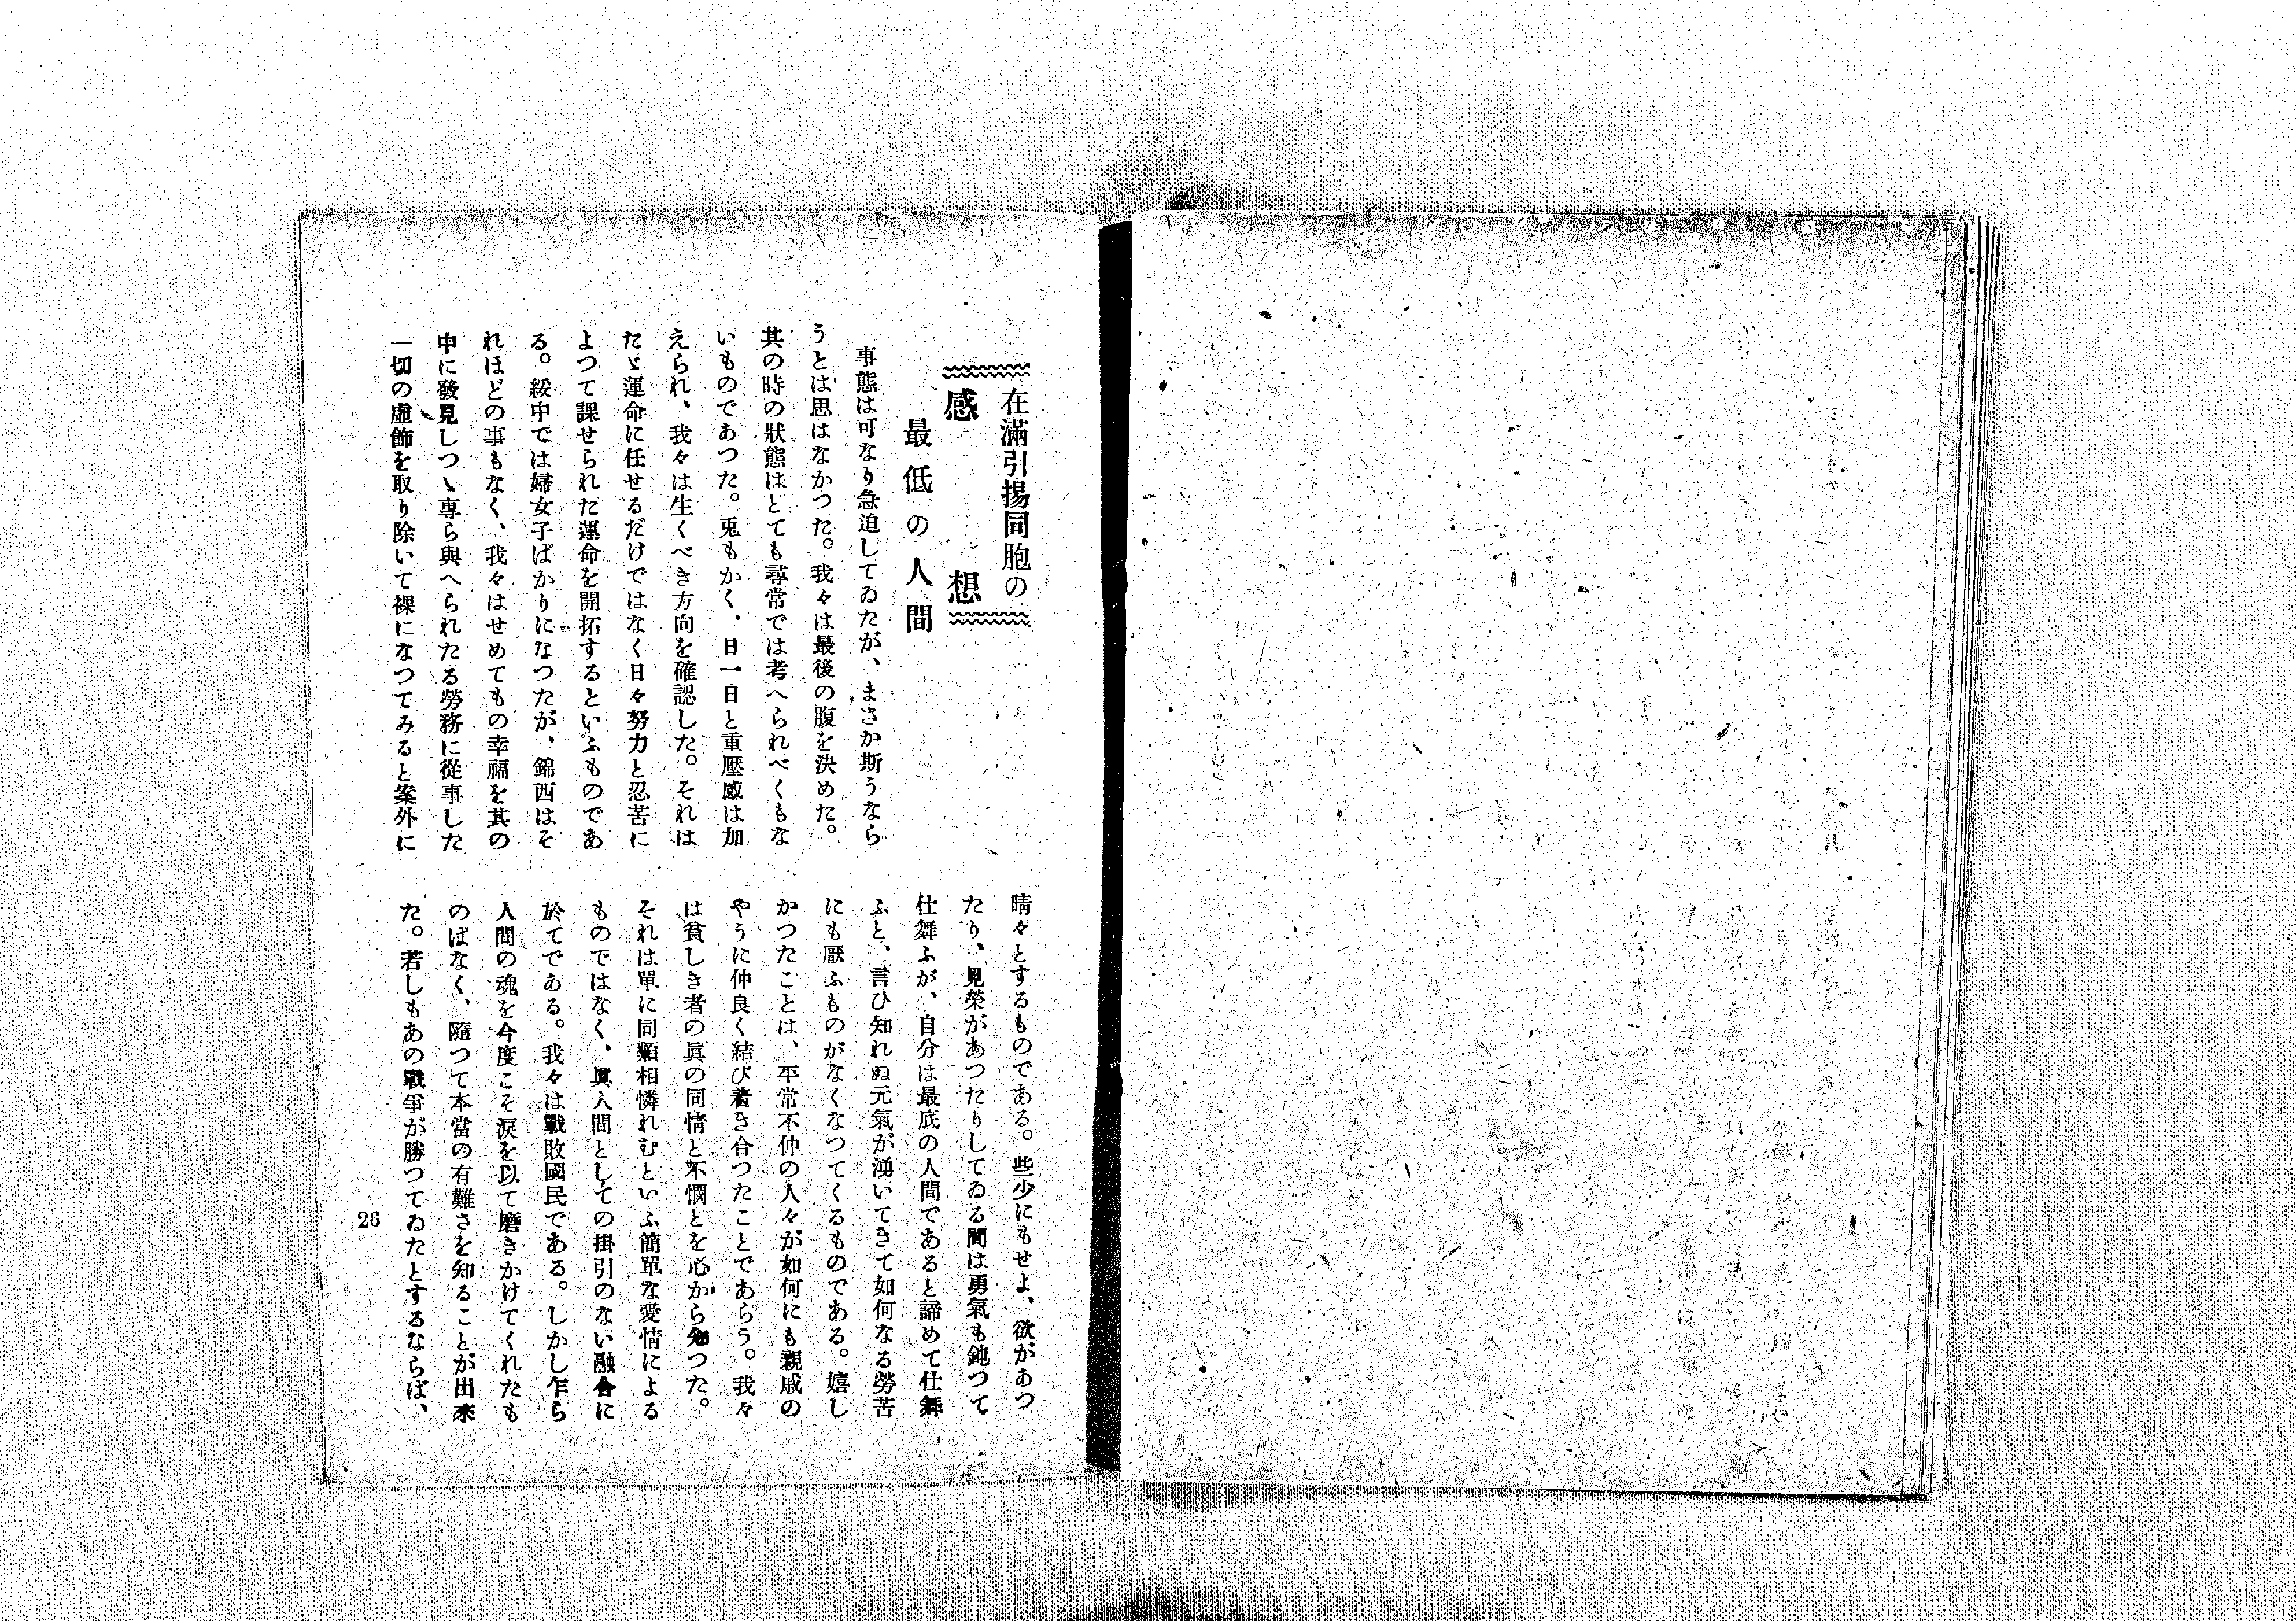 在滿引揚同胞の
感想
最低の人間
事態は可なり急迫してゐたが、まさか斯うなら
うとは思はなかつた。我々は最後の腹を決めた。
其の時の狀態はとても尋常では考へられべくもな
いものであつた。兎もかく、日一日と重壓感は加
えられ、我々は生くべき方向を確認した。それは
たゞ運命に任せるだけではなく日々努力と忍苦に
よつて課せられた運命を開拓するといふものであ
る。綏中では婦女子ばかりになつたが、錦西はそ
れほどの事もなく、我々はせめてもの幸福を其の
中に發見しつゝ專ら與へられたる勞務に從事した
一切の虛飾を取り除いて裸になつてみると案外に
晴々とするものである。些少にもせよ、欲があつ
たり、見榮があつたりしてゐる間は勇氣も鈍つて
仕舞ふが、自分は最底の人間であると諦めて仕舞
ふと、言ひ知れぬ元氣が湧いてきて如何なる勞苦
にも厭ふものがなくなつてくるものである。嬉し
かつたことは、平常不仲の人々が如何にも親戚の
やうに仲良く結び着き合つたことであらう。我々
は貧しき者の眞の同情と不憫とを心から知つた。
それは單に同類相憐れむといふ簡單な愛情による
ものではなく、眞人間としての掛引のない融合に
於てである。我々は戰敗國民である。しかし乍ら
人間の魂を今度こそ淚を以て磨きかけてくれたも
のはなく、隨つて本當の有難さを知ることが出來
た。若しもあの戰爭が勝つてゐたとするならば、
26